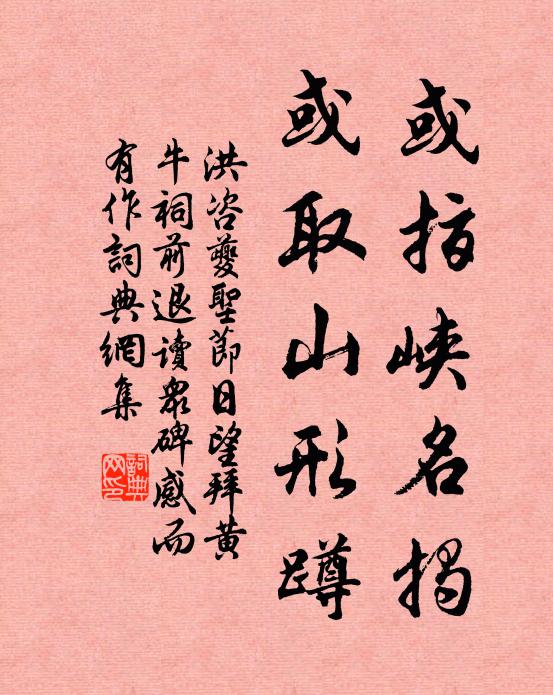 或指峽名揭
或取山形蹲
洪咨夔聖節日望拜黃
牛祠前退讀眾碑感而
有作詞典網集
詞典
网印